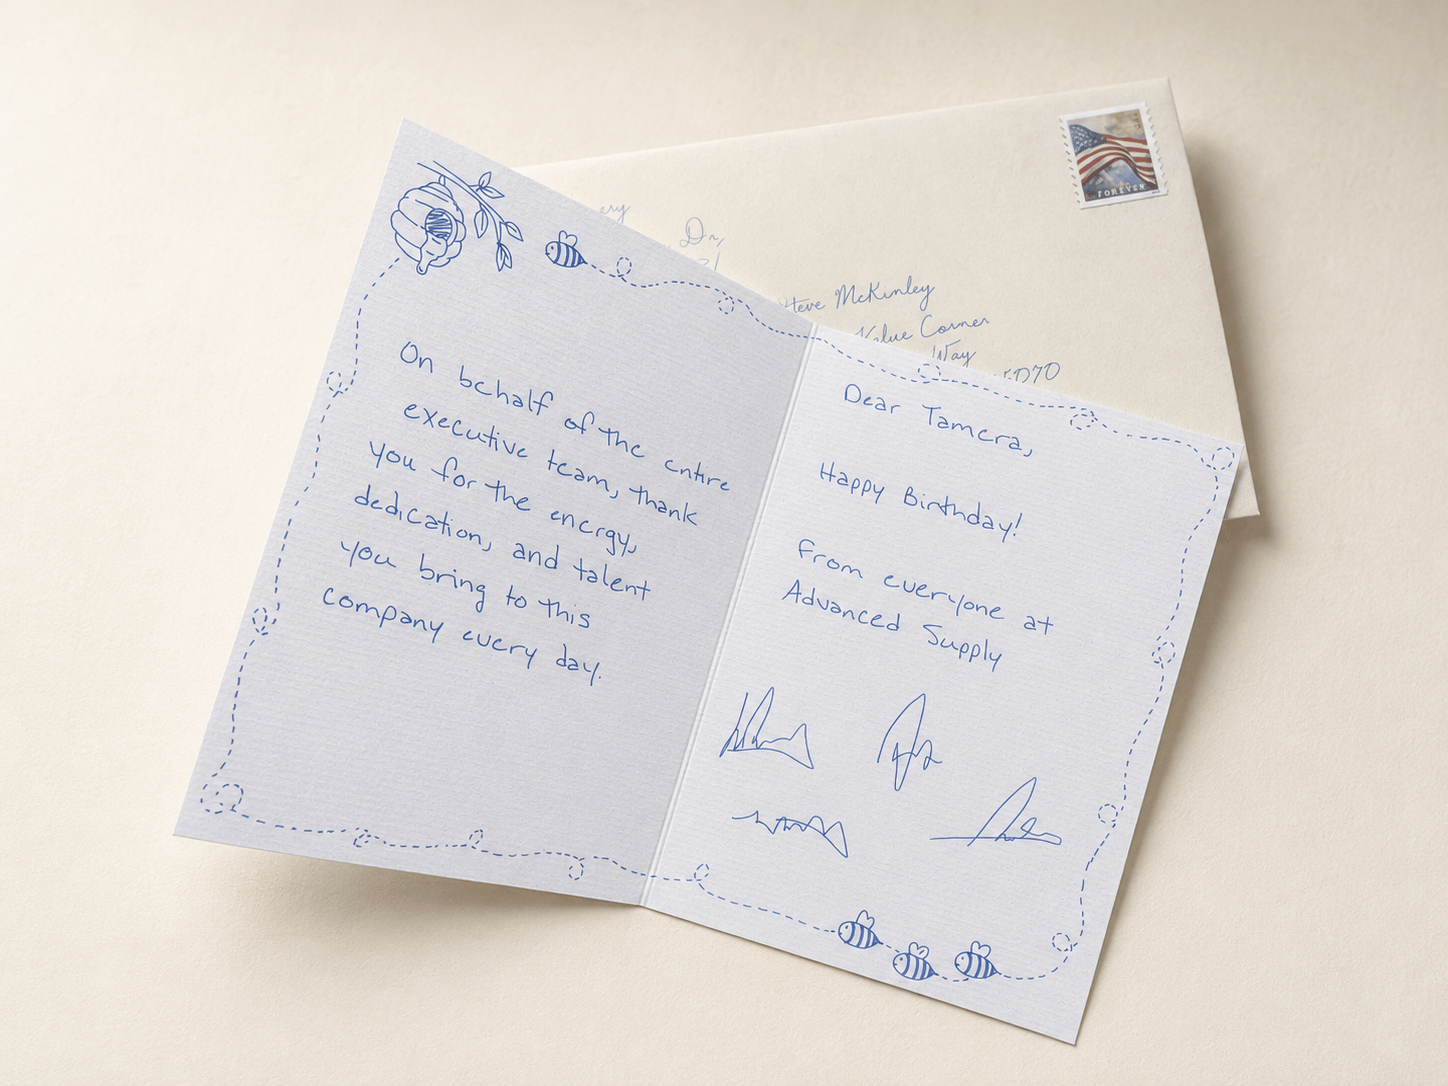 FOREVER
Dr,
Steve McKinley
Value Corner
Way
On behalf of the entire
executive team, thank
you for the energy,
dedication, and talent
you bring to this
company every day.
Dear Tamera,
Happy Birthday!
From everyone at
Advanced Supply